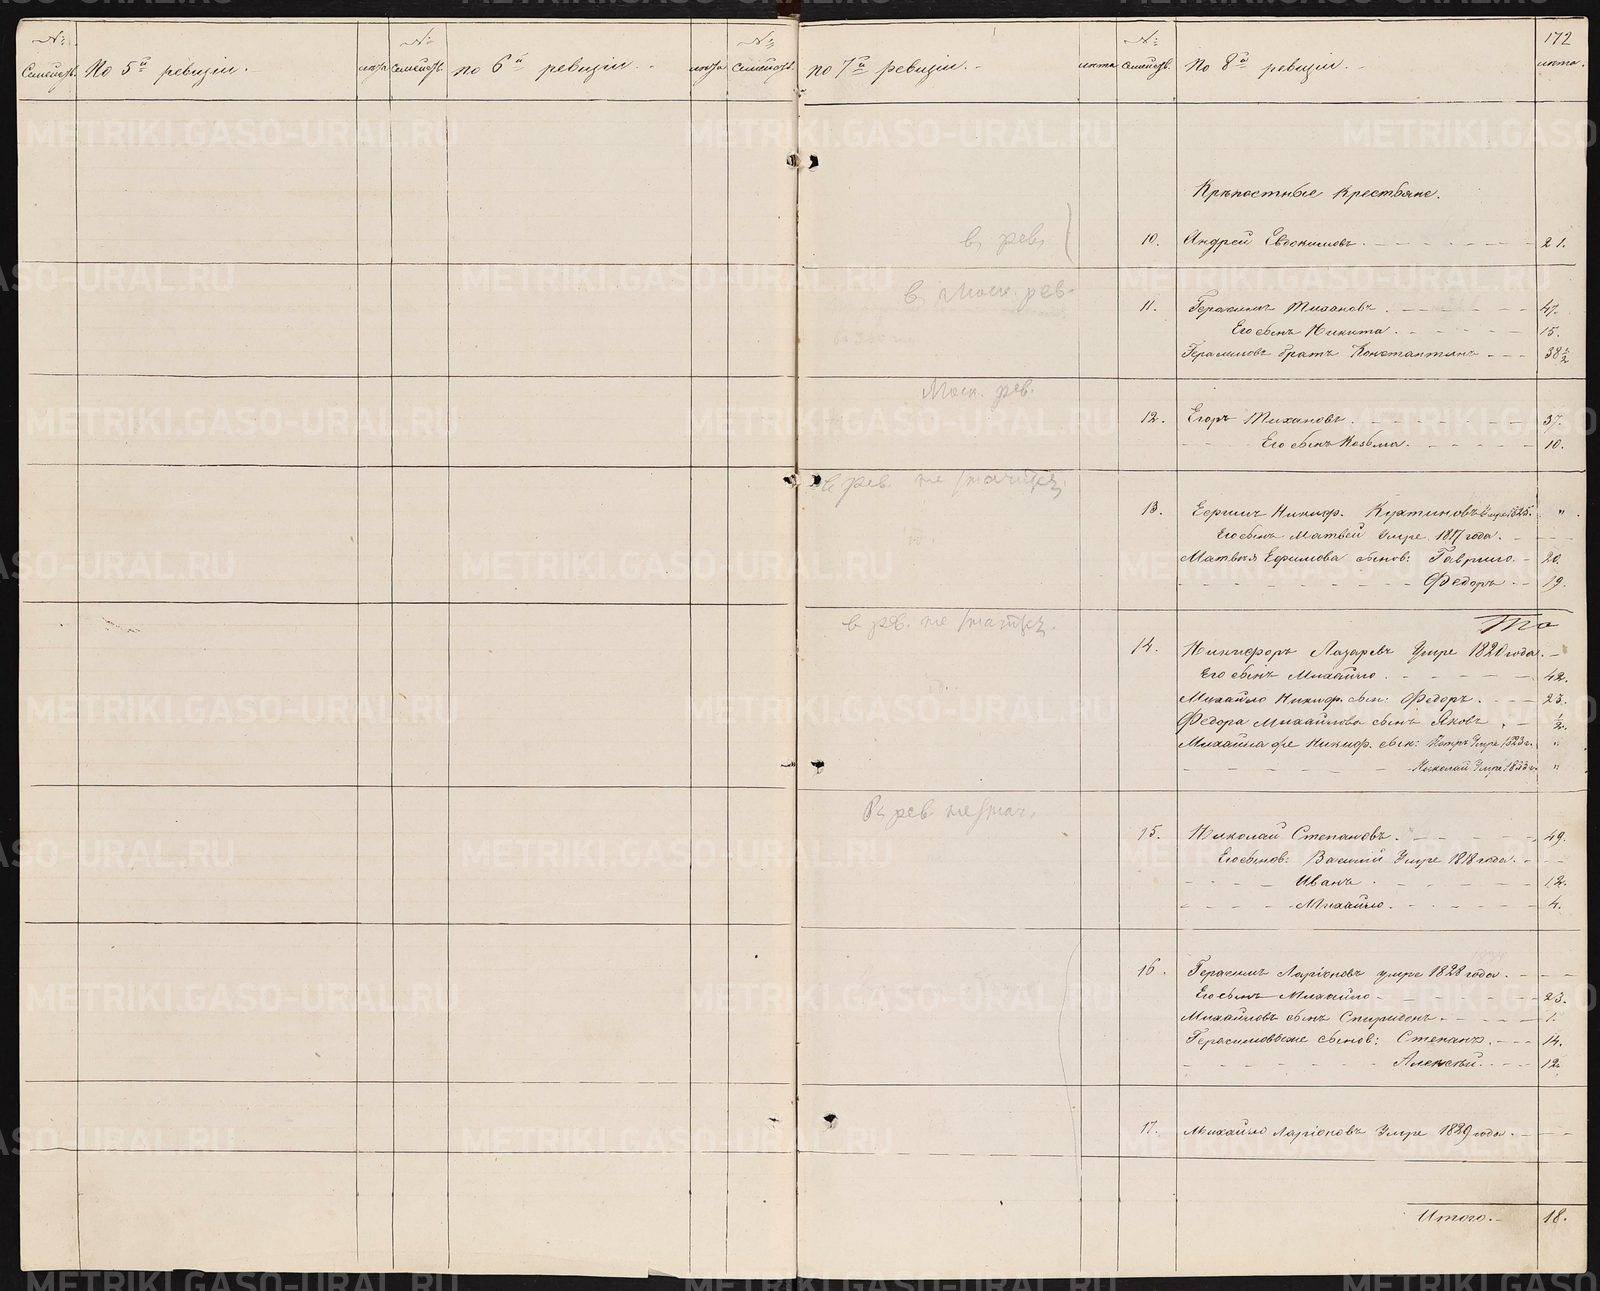 172
№ Семейст.
По 5й ревизіи.
лѣта
№ Семейст.
по 6й ревизіи.
лѣта
№ Семейст.
по 7й ревизіи.
лѣта
№ Семейст.
По 8й ревизіи.
лѣта.
Крѣпостные крестьяне.
в рев.
10. Андрей Евдокимовъ. 21.
в Моск. рев.
11. Герасимъ Тихановъ. 47.
Его сынъ Никита. 15.
Герасимовъ братъ Константинъ 38 1/2
Моск. рев.
12. Егоръ Тихановъ. 37.
Его сынъ Козьма. 10.
в рев. не
13. Ефимъ Никиф. Кухтиновъ 1825. "
Его сынъ Матвей умре 1817 года.
Матвѣя Ефимова сынов: Гаврило. 20.
Федоръ 19.
в рев. не
14. Никифоръ Лазаревъ умре 1820 года.
Его сынъ Михайло 42.
Михайло Никиф. сын: Федоръ. 23.
Федора Михайлова сынъ Яковъ 1/2.
Михайла же Никиф. сын: Петръ умре 1823 г. "
Николай умре "
В рев
15. Николай Степановъ. 49.
Его сынов: Василій умре 1818 года.
Иванъ 12.
Михайло. 4.
16. Герасимъ Ларіоновъ умре 1828 года.
Его сынъ Михайло 23.
Михайловъ сынъ Спиридонъ. 1.
Герасимовы же сынов: Степанъ. 14.
Алексѣй. 12.
17. Михайло Ларіоновъ умре 1829 года.
Итого. 18.
METRIKI.GASO-URAL.RU